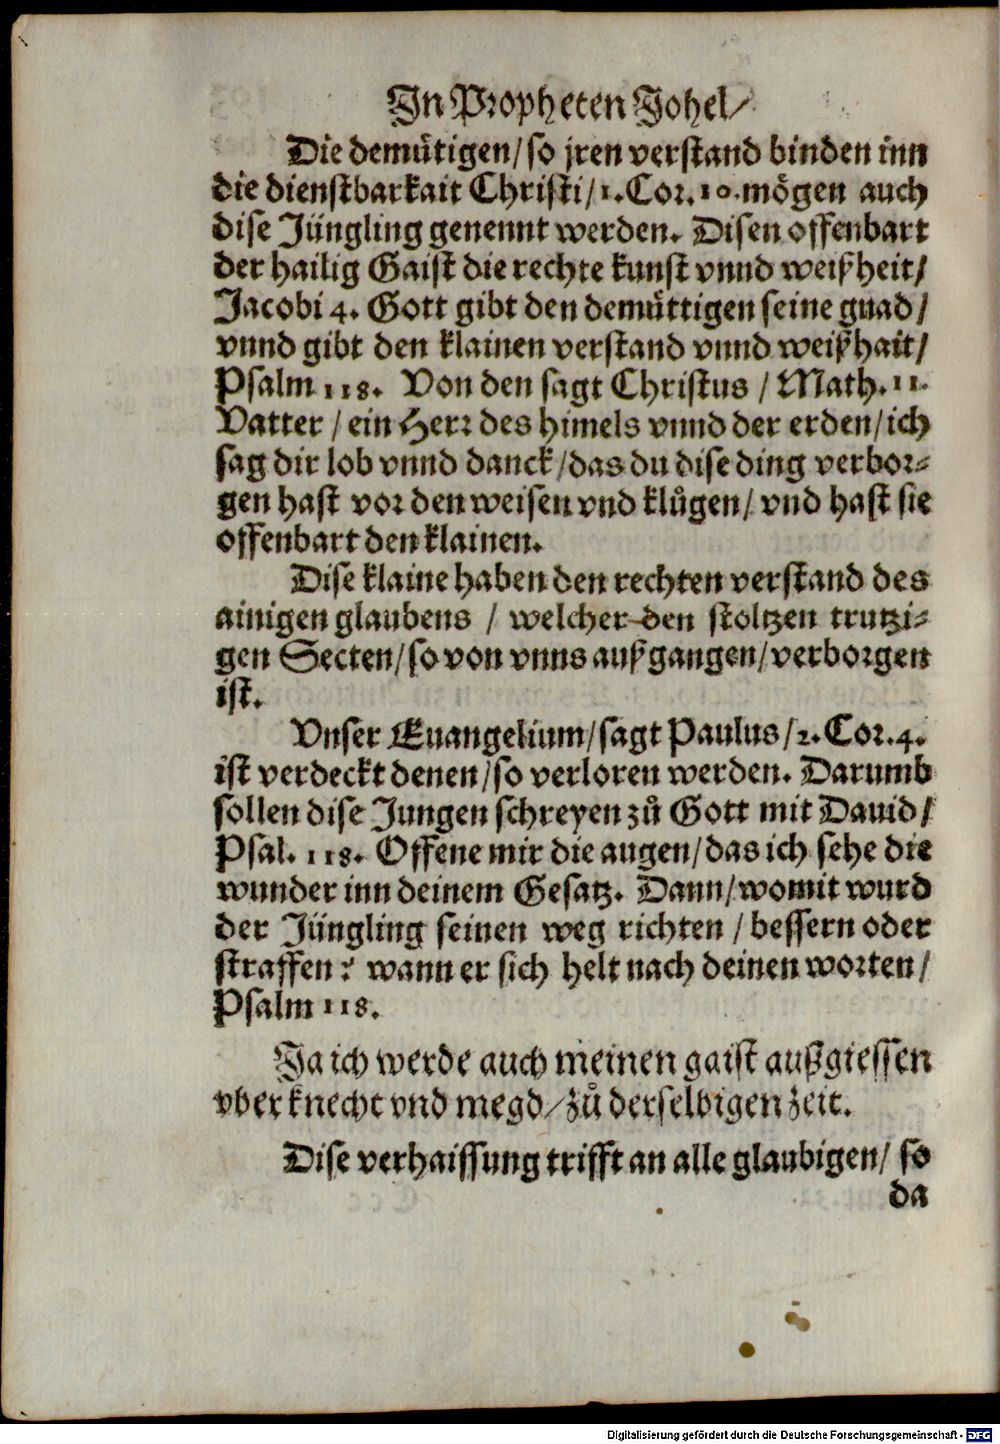 In Propheten Johel/
Die demuͤtigen/ so jren verstand binden inn
die dienstbarkait Christi/ 1. Cor. 10. moͤgen auch
dise Jüngling genennt werden. Disen offenbart
der hailig Gaist die rechte kunst vnnd weißheit/
Jacobi 4. Gott gibt den demuͤttigen seine gnad/
vnnd gibt den klainen verstand vnnd weißhait/
Psalm 118. Von den sagt Christus / Math. 11.
Vatter / ein Herr des himels vnnd der erden/ ich
sag dir lob vnnd danck/ das du dise ding verbor⸗
gen hast vor den weisen vnd kluͦgen/ vnd hast sie
offenbart den klainen.
Dise klaine haben den rechten verstand des
ainigen glaubens / welcher den stoltzen trutzi⸗
gen Secten/ so von vnns außgangen/ verborgen
ist.
Vnser Euangelium/ sagt Paulus/ 2. Cor. 4.
ist verdeckt denen/ so verloren werden. Darumb
sollen dise Jungen schreyen zuͦ Gott mit Dauid/
Psal. 118. Offene mir die augen/ das ich sehe die
wunder inn deinem Gesatz. Dann/ womit wurd
der Jüngling seinen weg richten / bessern oder
straffen? wann er sich helt nach deinen worten/
Psalm 118.
Ja ich werde auch meinen gaist außgiessen
vber knecht vnd megd/ zuͦ derselbigen zeit.
Dise verhaissung trifft an alle glaubigen/ so
da
Digitalisierung gefördert durch die Deutsche Forschungsgemeinschaft - DFG